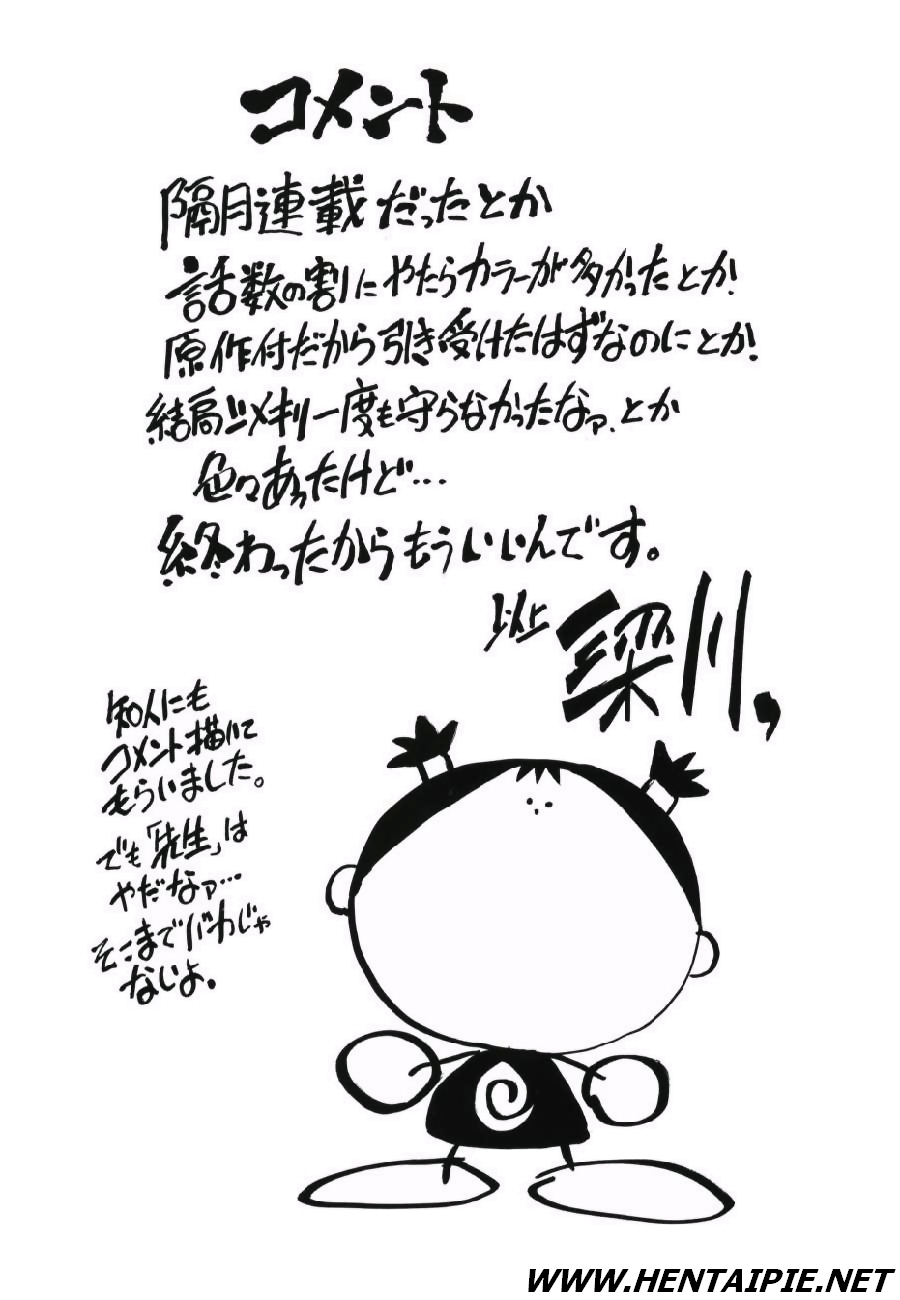 コメント
隔月連載だったとか
話数の割にやたらカラーが多かったとか!
原作付だから引き受けたはずなのにとか!
結局〆メキリ一度も守らなかったなァ、とか
色々あったけど…
終わったからもういいんです。
以上 梁川,
知人にも
コメント描いて
もらいました。
でも「先生」は
やだなァ…
そこまでバカじゃ
ないよ。
WWW.HENTAIPIE.NET